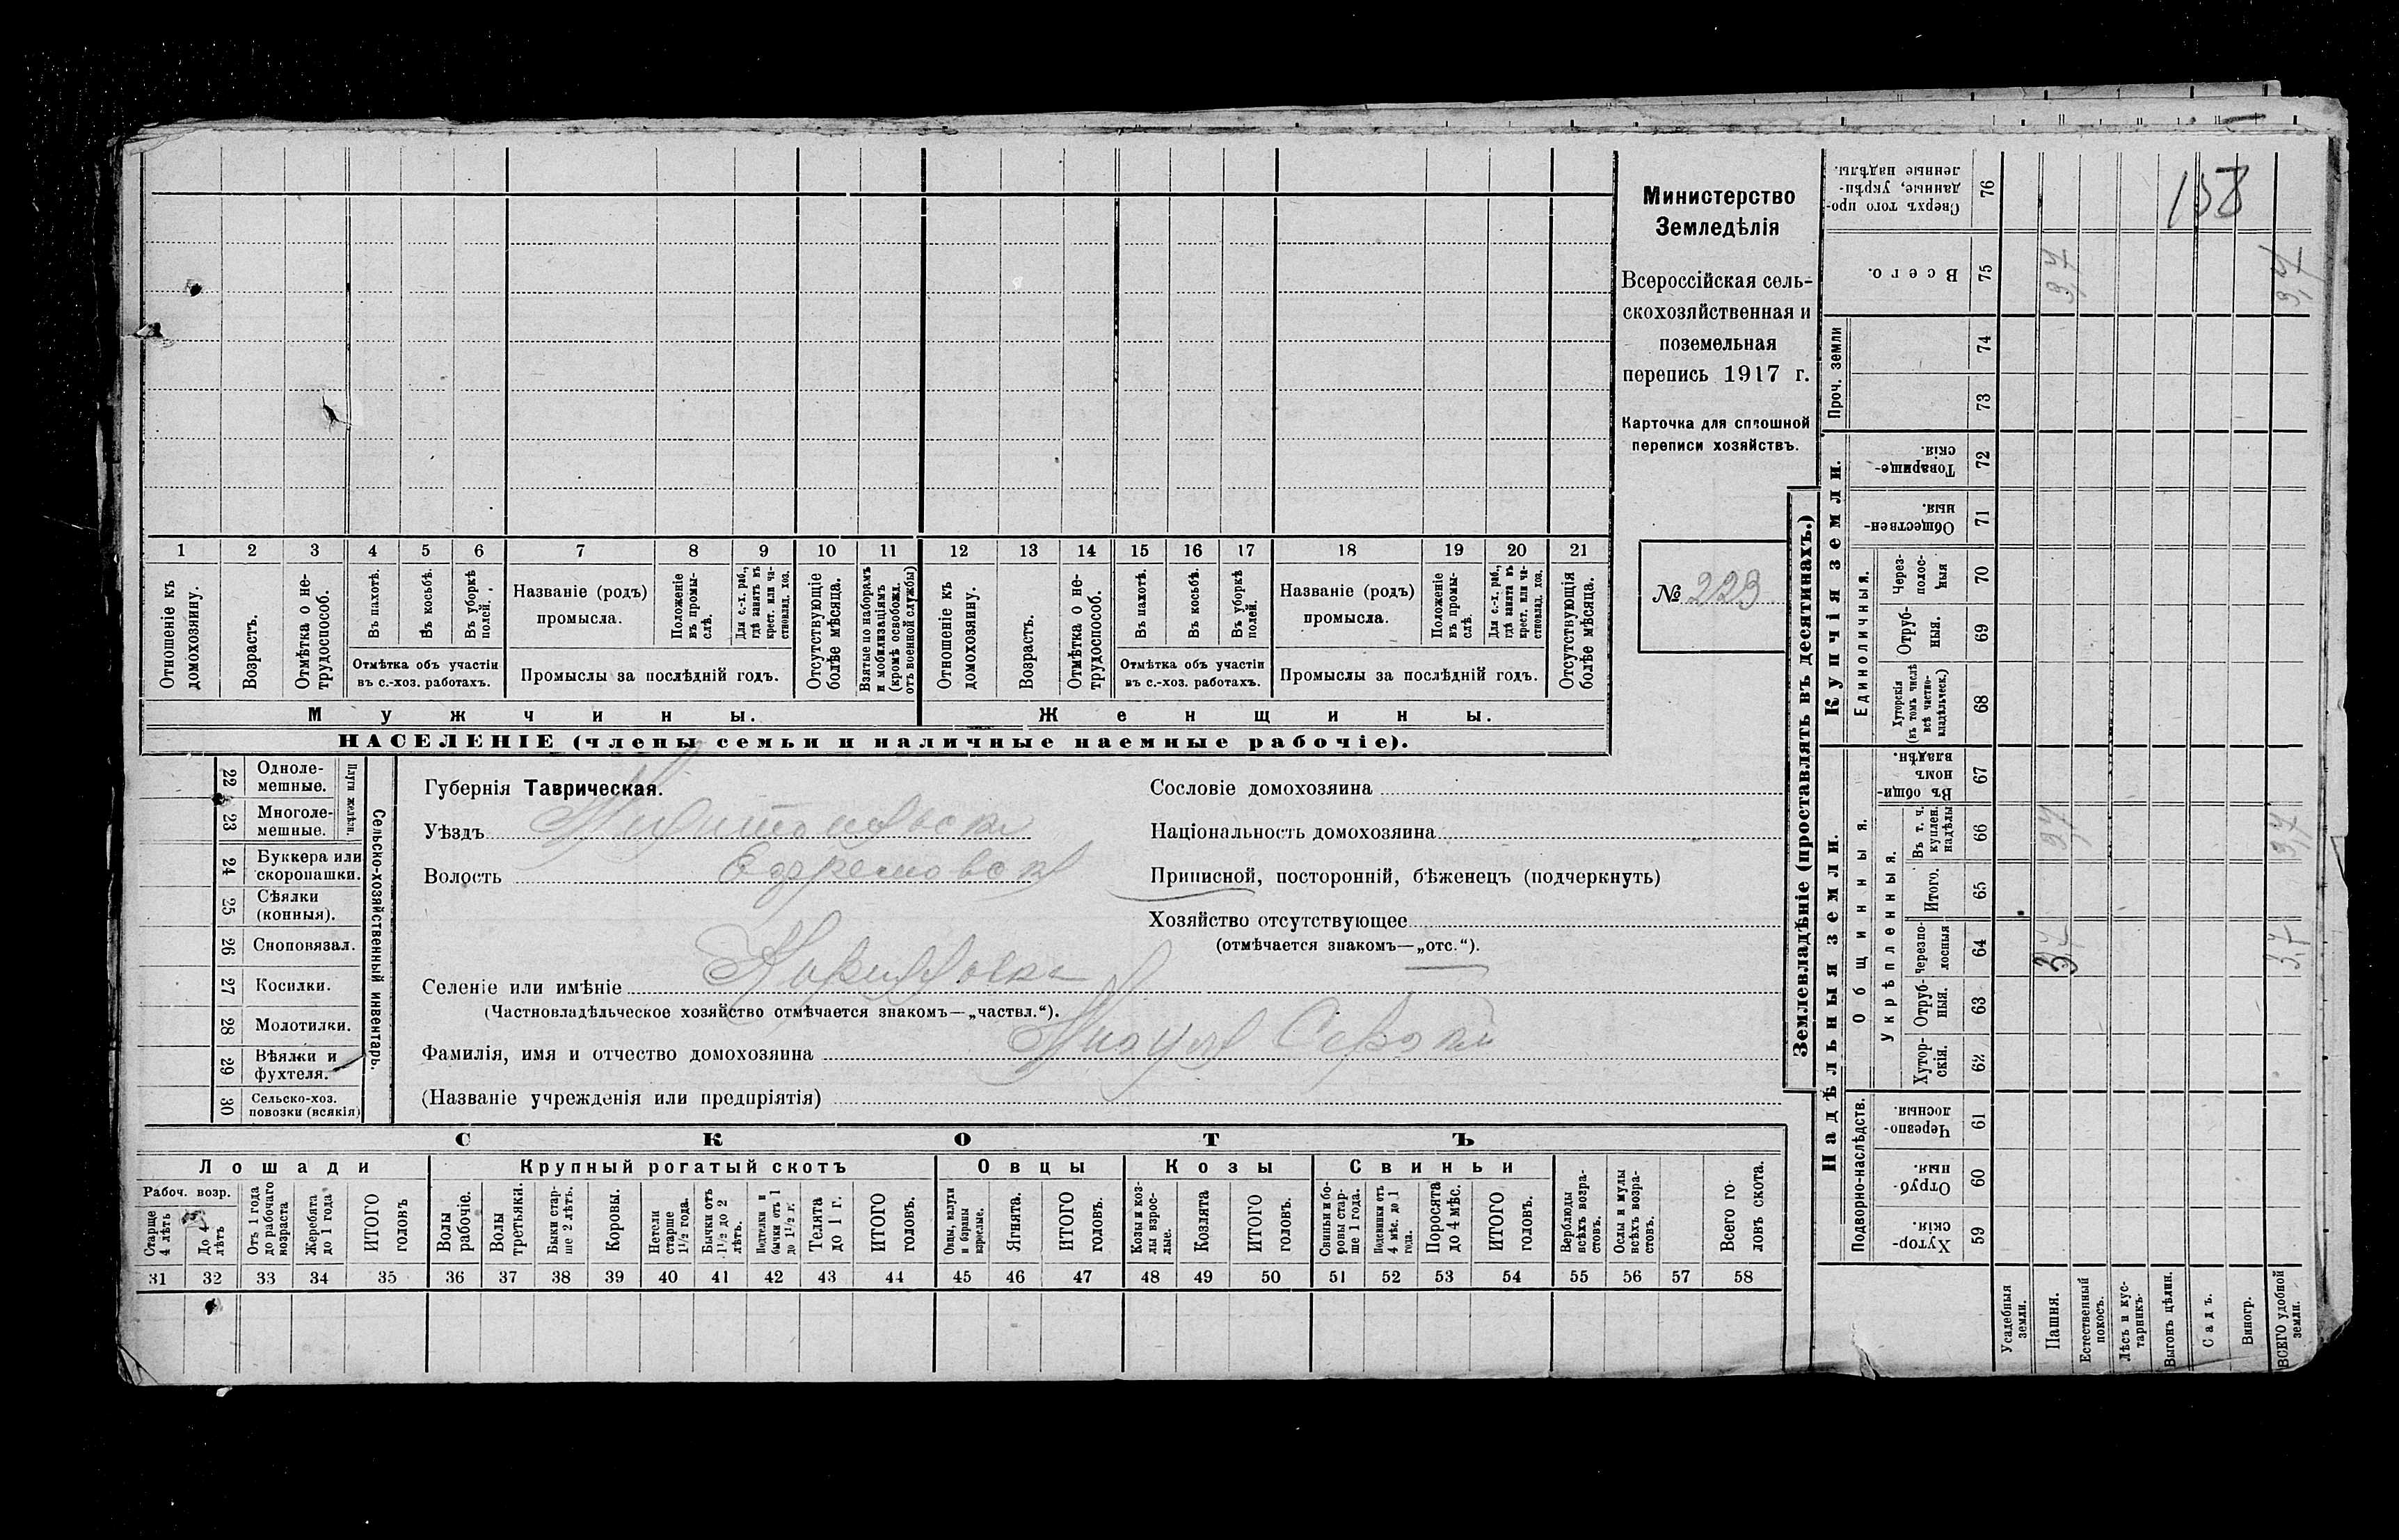 158
Министерство
Земледѣлія
Всероссійская сель-
скохозяйственная и
поземельная
перепись 1917 г.
Карточка для сплошной
переписи хозяйствъ.
№ 223
1 2 3 4 5 6 7 8 9 10 11 12 13 14 15 16 17 18 19 20 21
Отношеніе къ домохозяину.
Возрастъ.
Отмѣтка о не-трудоспособ.
Въ пахотѣ.
Въ косьбѣ.
Въ уборкѣ полей.
Отмѣтка объ участіи
въ с.-хоз. работахъ.
Названіе (родъ)
промысла.
Положеніе въ промы-слѣ.
Для с.-х. раб., гдѣ занятъ въ крест. или ча-стновлад. хоз.
Промыслы за послѣдній годъ.
Отсутствующіе болѣе мѣсяца.
Взятые по наборамъ и мобилизаціямъ (кромѣ освобожд. отъ военной службы)
Отношеніе къ домохозяину.
Возрастъ.
Отмѣтка о не-трудоспособ.
Въ пахотѣ.
Въ косьбѣ.
Въ уборкѣ полей.
Отмѣтка объ участіи
въ с.-хоз. работахъ.
Названіе (родъ)
промысла.
Положеніе въ промы-слѣ.
Для с.-х. раб., гдѣ занята въ крест. или ча-стновлад. хоз.
Промыслы за послѣдній годъ.
Отсутствующія болѣе мѣсяца.
Мужчины.
Женщины.
НАСЕЛЕНІЕ (члены семьи и наличные наемные рабочіе).
22 Одноле-мешные.
23 Многоле-мешные.
Плуги желѣзн.
24 Буккера или скоропашки.
25 Сѣялки (конныя).
26 Сноповязал.
27 Косилки.
28 Молотилки.
29 Вѣялки и фухтеля.
30 Сельско-хоз. повозки (всякія)
Сельско-хозяйственный инвентарь.
Губернія Таврическая.
Уѣздъ
Волость Ефремовск
Селеніе или имѣніе
(Частновладѣльческое хозяйство отмѣчается знакомъ—„частвл.“).
Фамилія, имя и отчество домохозяина
(Названіе учрежденія или предпріятія)
Сословіе домохозяина
Національность домохозяина
Приписной, посторонній, бѣженецъ (подчеркнуть)
Хозяйство отсутствующее
(отмѣчается знакомъ—„отс.“).
СКОТЪ
Лошади
Крупный рогатый скотъ
Овцы
Козы
Свиньи
Рабоч. возр.
Старше 4 лѣтъ
До 4 лѣтъ
Отъ 1 года до рабочаго возраста
Жеребята до 1 года
ИТОГО головъ
Волы рабочіе.
Волы третьяки.
Быки стар-ше 2 лѣтъ.
Коровы.
Нетели старше 1½ года.
Бычки отъ 1½ до 2 лѣтъ.
Подтелки и бычки отъ 1 до 1½ г.
Телята до 1 г.
ИТОГО головъ.
Овцы, валухи и бараны взрослые.
Ягнята.
ИТОГО головъ.
Козы и коз-лы взрос-лые.
Козлята
ИТОГО головъ.
Свиньи и бо-ровы стар-ше 1 года.
Подсвинки отъ 4 мѣс. до 1 года.
Поросята до 4 мѣс.
ИТОГО головъ.
Верблюды всѣхъ возра-стовъ.
Ослы и мулы всѣхъ возра-стовъ.
Всего го-ловъ скота.
31 32 33 34 35 36 37 38 39 40 41 42 43 44 45 46 47 48 49 50 51 52 53 54 55 56 57 58
Землевладѣніе (проставлять въ десятинахъ.)
Купчія земли.
Надѣльныя земли.
Сверхъ того про-данные, укрѣп-ленные надѣлы. 76
Всего. 75
Проч. земли
74
73
Товарище-скія. 72
Обществен-ныя. 71
Единоличныя.
Через-полос-ныя 70
Отруб-ныя. 69
Хуторскія (въ томъ числѣ всѣ частно-владѣльческ.) 68
Общинныя.
Въ общи-номъ владѣн. 67
Укрѣпленныя.
Въ т. ч. куплен. надѣлы 66
Итого. 65
Черезпо-лосныя 64
Отруб-ныя. 63
Хутор-скія. 62
Подворно-наслѣдств.
Черезпо-лосныя. 61
Отруб-ныя. 60
Хутор-скія. 59
Усадебныя земли.
Пашня.
Естественный покосъ.
Лѣсъ и кус-тарникъ.
Выгонъ цѣлин.
Садъ.
Виногр.
ВСЕГО удобной земли.